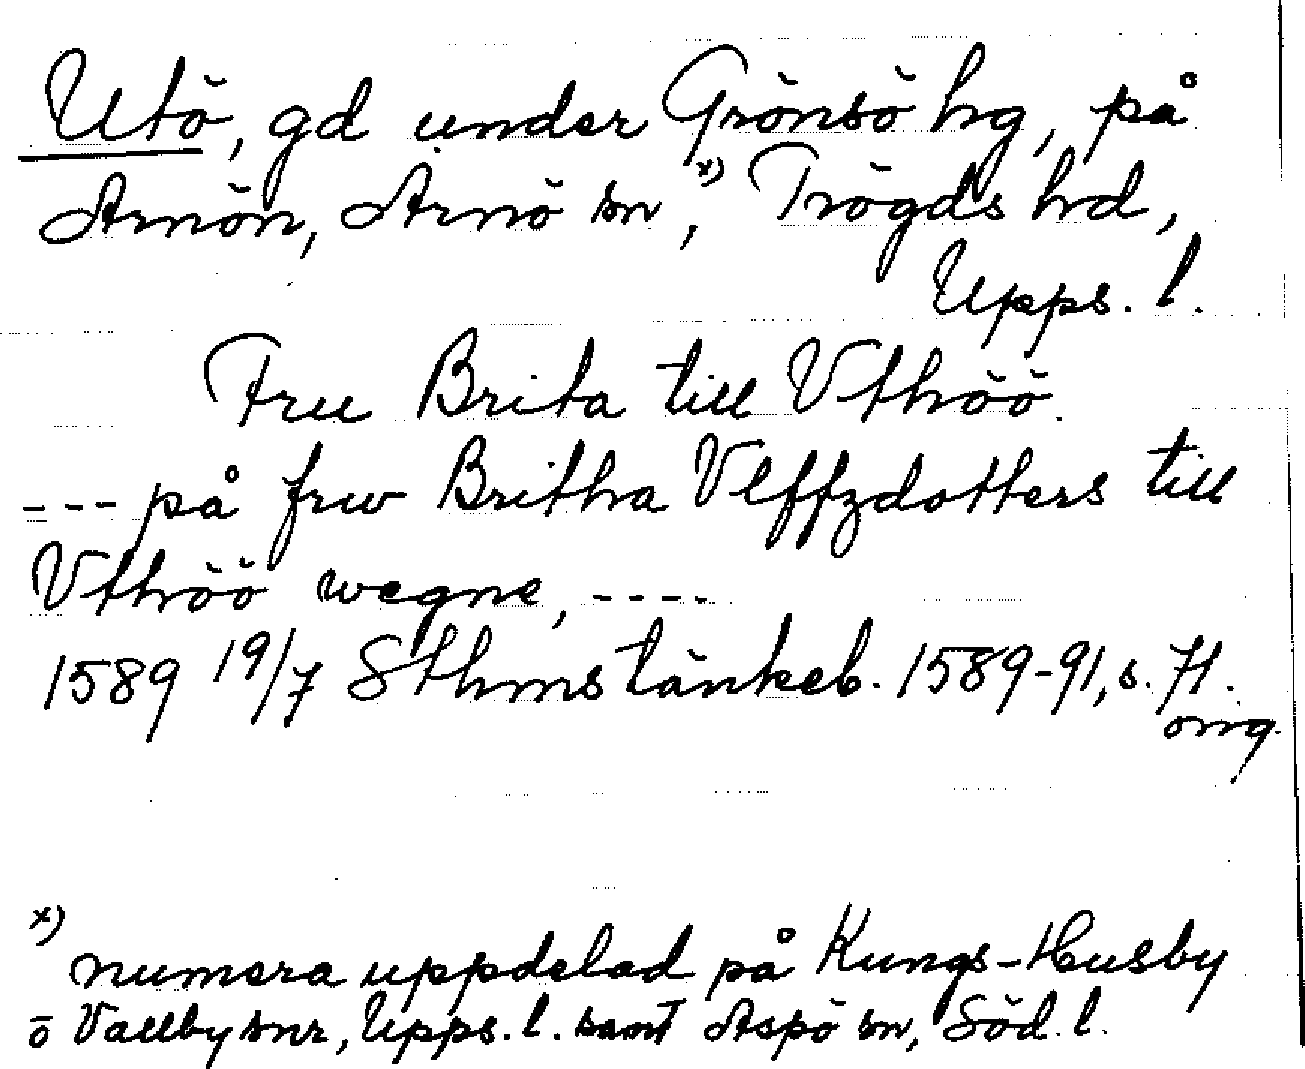 Utö, gd under Grönsö hg, på
Arnön, Arnö sn,ˣ⁾ Trögds hd,
Upps. l.
Fru Brita till Vthöö.
--- på frw Britha Vlffzdotters till
Vthöö wegne, ----
1589 19/7 Sthms tänkeb. 1589-91, s. 71.
orig.
x)
numera uppdelad på Kungs-Husby
o Vallby snr, Upps. l. samt Aspö sn, Söd. l.